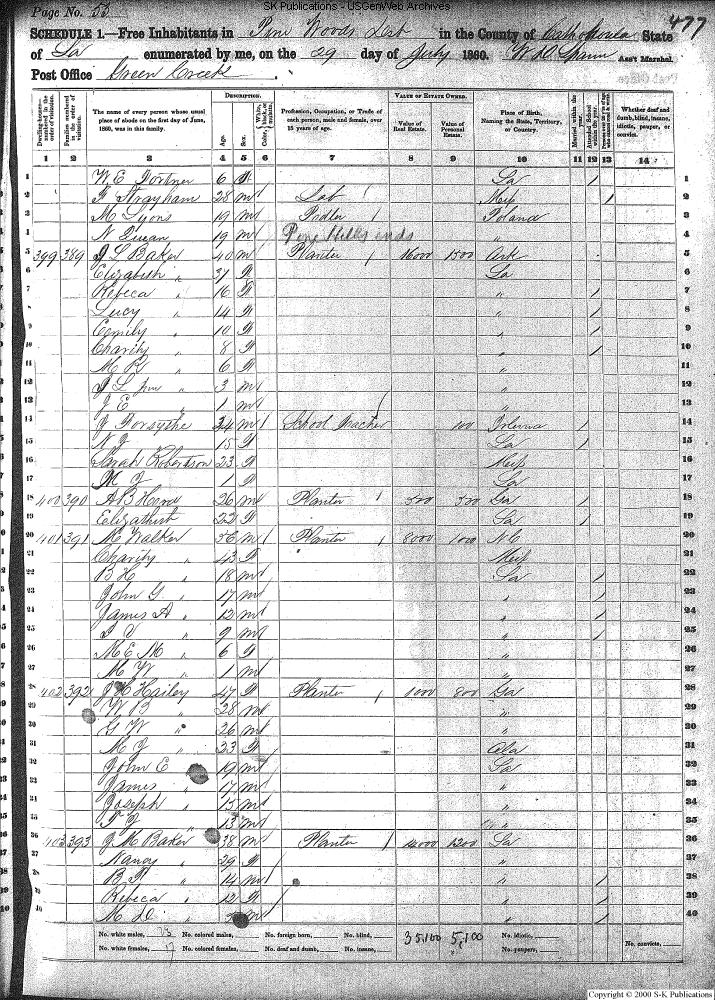 SK Publications - USGenWeb Archives
Page No. 53
477
SCHEDULE 1.—Free Inhabitants in Pine Woods Dist in the County of Catahoula State
of La enumerated by me, on the 29 day of July 1860. Ass't Marshal.
Post Office Green Creek
Dwelling-houses—numbered in the order of visitation.
Families numbered in the order of visitation.
The name of every person whose usual place of abode on the first day of June, 1860, was in this family.
DESCRIPTION.
Age.
Sex.
Color, White, black, or mulatto.
Profession, Occupation, or Trade of each person, male and female, over 15 years of age.
VALUE OF ESTATE OWNED.
Value of Real Estate.
Value of Personal Estate.
Place of Birth, Naming the State, Territory, or Country.
Married within the year.
Attended School within the year.
Whether deaf and dumb, blind, insane, idiotic, pauper, or convict.
1 2 3 4 5 6 7 8 9 10 11 12 13 14
1 W E Fortner 6 La / 1
2 Strayham 28 m Lab Miss / 2
3 M Lyons 19 m Pedler / Poland 3
4 N 19 m Pine Hills ends " 4
5 399 389 J L Baker 40 m Planter / 16000 1500 Ark 5
6 Elizabeth " 37 f La 6
7 Rebeca " 16 f " / 7
8 Lucy " 14 f " / 8
9 Emily " 10 f " / 9
10 Charity " 8 f " / 10
11 M R " 6 f " 11
12 J L Jun " 3 m " 12
13 J E " 1 m " 13
14 J Forsythe 34 m School Teacher 100 / 14
15 N J 15 f La / 15
16 Sarah Robertson 23 f Miss 16
17 M J 1 f La 17
18 400 390 A B Herd 26 m Planter / 500 500 Ga / 18
19 Elizabeth 22 f La / 19
20 401 391 M Walker 56 m Planter / 8000 1000 N C 20
21 Charity " 43 f Miss 21
22 B H " 18 m La / 22
23 John G " 17 m " / 23
24 James A " 12 m " / 24
25 " 9 m " / 25
26 M E M " 6 f " 26
27 M W " 1 m " 27
28 402 392 J H Hailey 47 f Planter / 1000 800 Ga 28
29 W B " 28 m " 29
30 G W " 26 m " 30
31 M J " 23 f Ala 31
32 John E 19 m La 32
33 James " 17 m " 33
34 Joseph " 15 m " 34
35 " 13 m " 35
36 403 393 J M Baker 38 m Planter / 4000 1200 La 36
37 Nancy " 29 f " 37
38 " 14 m " / 38
39 Rebeca " 12 f " / 39
40 " m " / 40
No. white males, No. colored males, No. foreign born, No. blind, 35,100 5,100 No. idiotic,
No. white females, No. colored females, No. deaf and dumb, No. insane, No. paupers, No. convicts,
Copyright © 2000 S-K Publications